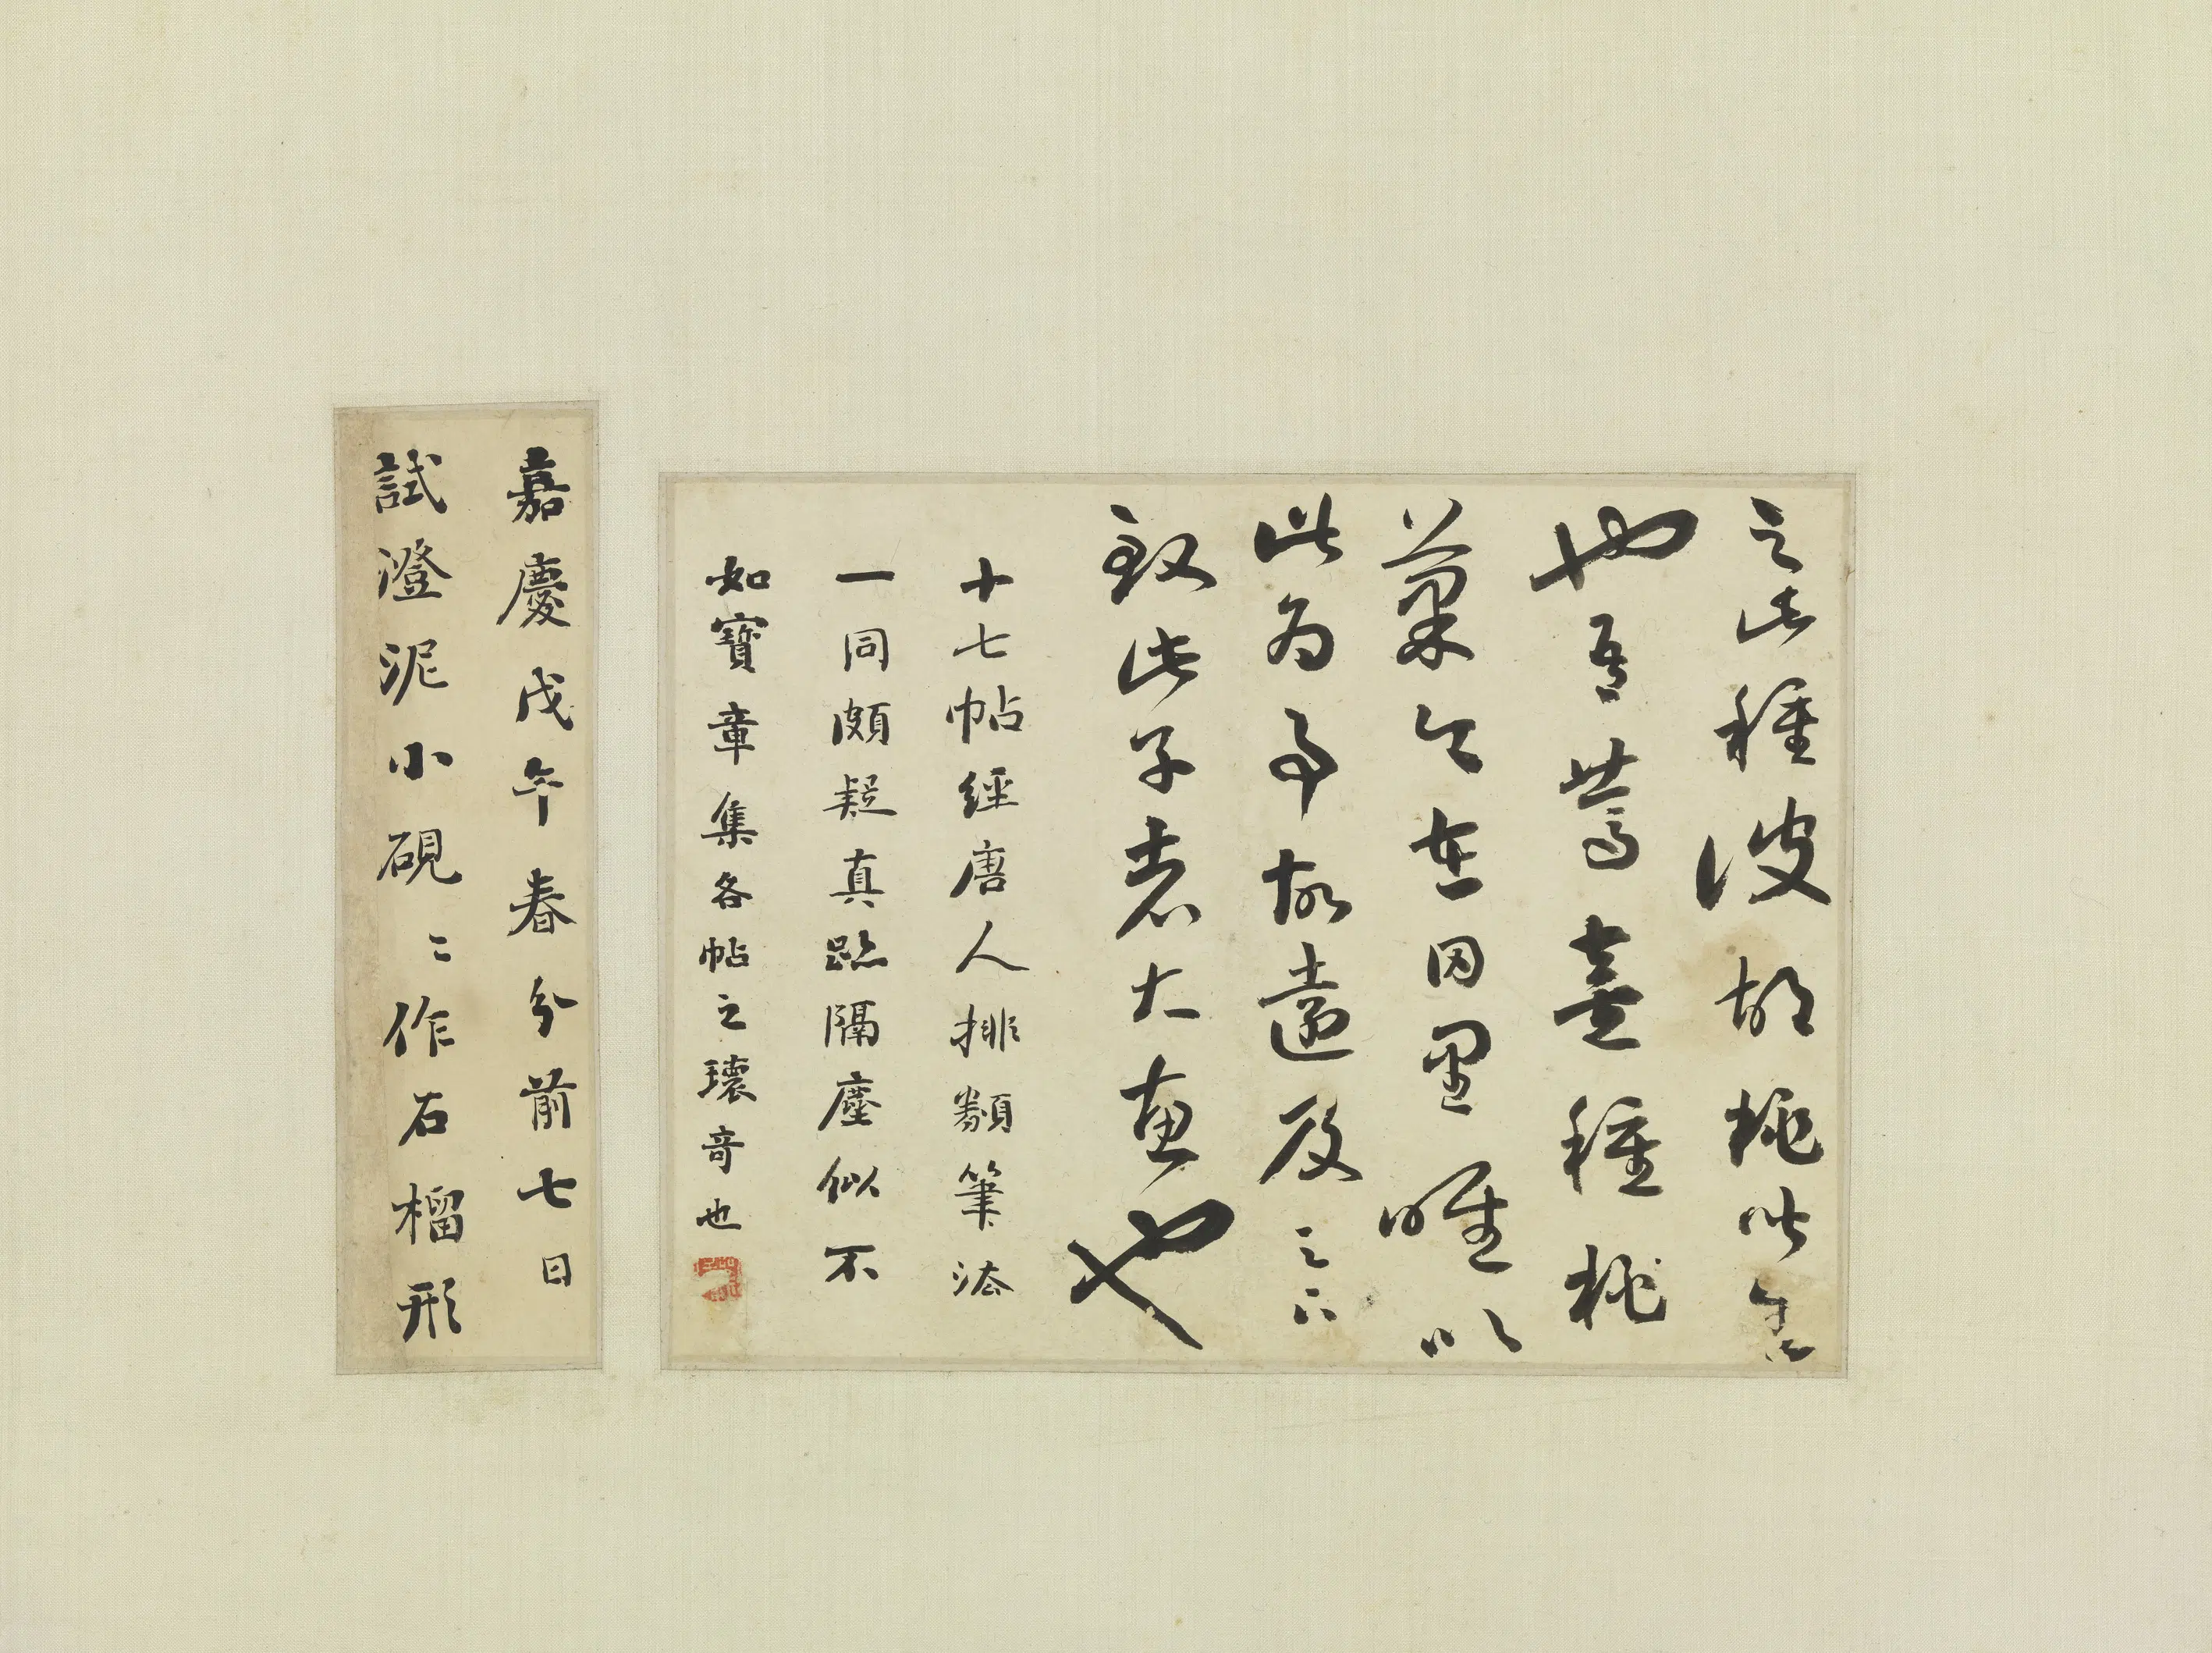 之此種彼胡桃皆生
也吾篤喜種桃
菓今在田里唯以
此為事故遠及足下
致此子者大惠也
十七帖經唐人排類筆法
一同頗疑真跡隔塵似不
如寶章集各帖之瓌奇也
嘉慶戊午春分前七日
試澄泥小硯〻作石榴形